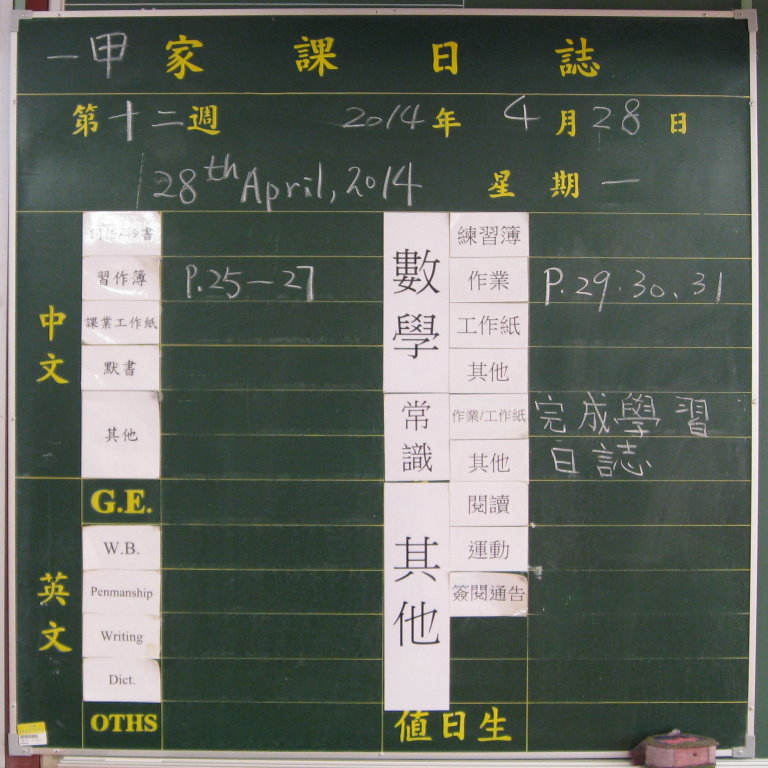 一甲 家 課 日 誌
第十二週 2014年 4月28日
28th April, 2014 星期一
中文
詞語/抄書
習作簿 P.25-27
課業工作紙
默書
其他
英文
G.E.
W.B.
Penmanship
Writing
Dict.
OTHS
數學
練習簿
作業 P.29.30.31
工作紙
其他
常識
作業/工作紙 完成學習
其他 日誌
其他
閱讀
運動
簽閱通告
值日生